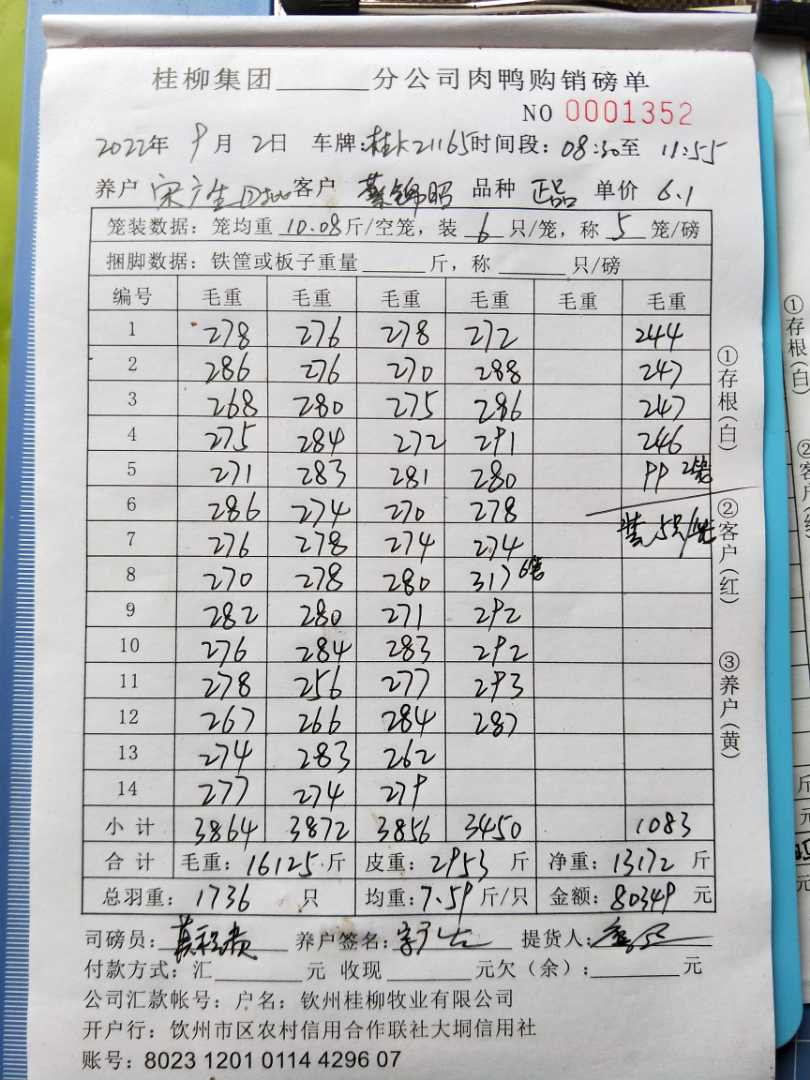 桂柳集团______分公司肉鸭购销磅单
NO 0001352
2022年 9月 2日 车牌:桂K21165 时间段: 08:30至 11:55
养户 宋广生 客户 蔡锦昭 品种 正品 单价 6.1
笼装数据: 笼均重 10.08斤/空笼, 装 6 只/笼, 称 5 笼/磅
捆脚数据: 铁筐或板子重量______斤, 称______只/磅
编号 毛重 毛重 毛重 毛重 毛重 毛重
1 278 276 278 272 244
2 286 276 270 288 247
3 268 280 275 286 247
4 275 284 272 291 246
5 271 283 281 280 PP 2笼
6 286 274 270 278
7 276 278 274 274 装5只/笼
8 270 278 280 317 6笼
9 282 280 271 292
10 276 284 283 292
11 278 256 277 293
12 267 266 284 287
13 274 283 262
14 277 274 279
小计 3864 3872 3856 3450 1083
合计 毛重: 16125斤 皮重: 2953斤 净重: 13172斤
总羽重: 1736 只 均重: 7.59斤/只 金额: 80349元
司磅员: 养户签名: 提货人:
付款方式: 汇______元 收现______元欠(余):______元
公司汇款帐号: 户名: 钦州桂柳牧业有限公司
开户行: 钦州市区农村信用合作联社大垌信用社
账号: 8023 1201 0114 4296 07
①存根(白)
②客户(红)
③养户(黄)
①存根(白)
②客户(红
斤
元
元